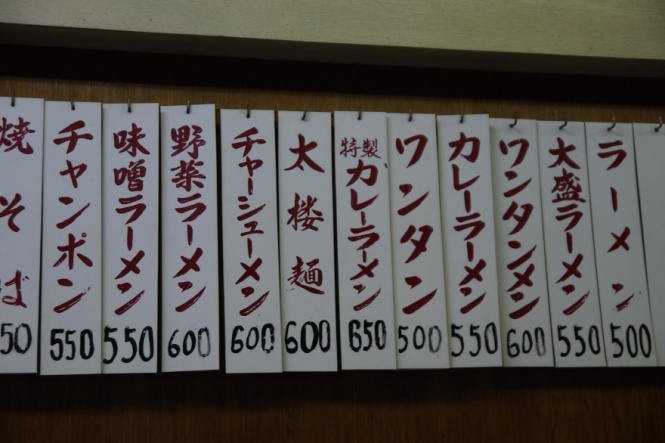 ラーメン
500
大盛ラーメン
550
ワンタンメン
600
カレーラーメン
550
ワンタン
500
特製
カレーラーメン
650
太楼麺
600
チャーシューメン
600
野菜ラーメン
600
味噌ラーメン
550
チャンポン
550
焼そば
50